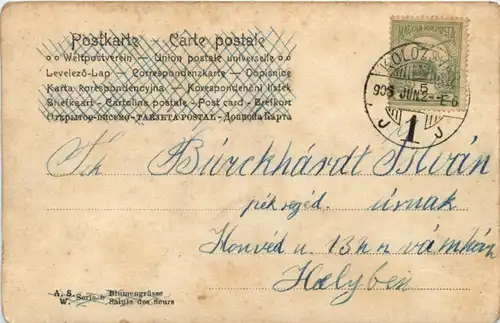 Postkarte — Carte postale
Weltpostverein — Union postale universelle
Levelező-Lap — Correspondenzkarte — Dopisnice
Karta korespondencyjna — Korespondenčni listek
Briefkaart — Cartolina postale — Post card — Brefkort
Открытое письмо — TARJETA POSTAL — Дописна Карта
MAGYAR KIR. POSTA
KOLOZS
906 JUN 2
1
J J
Tek Bürckhárdt István
péksegéd úrnak
Honvéd u 13 h n vámház
Helyben
A. S. Blumengrüsse
W. Serie 6 Saluts des fleurs